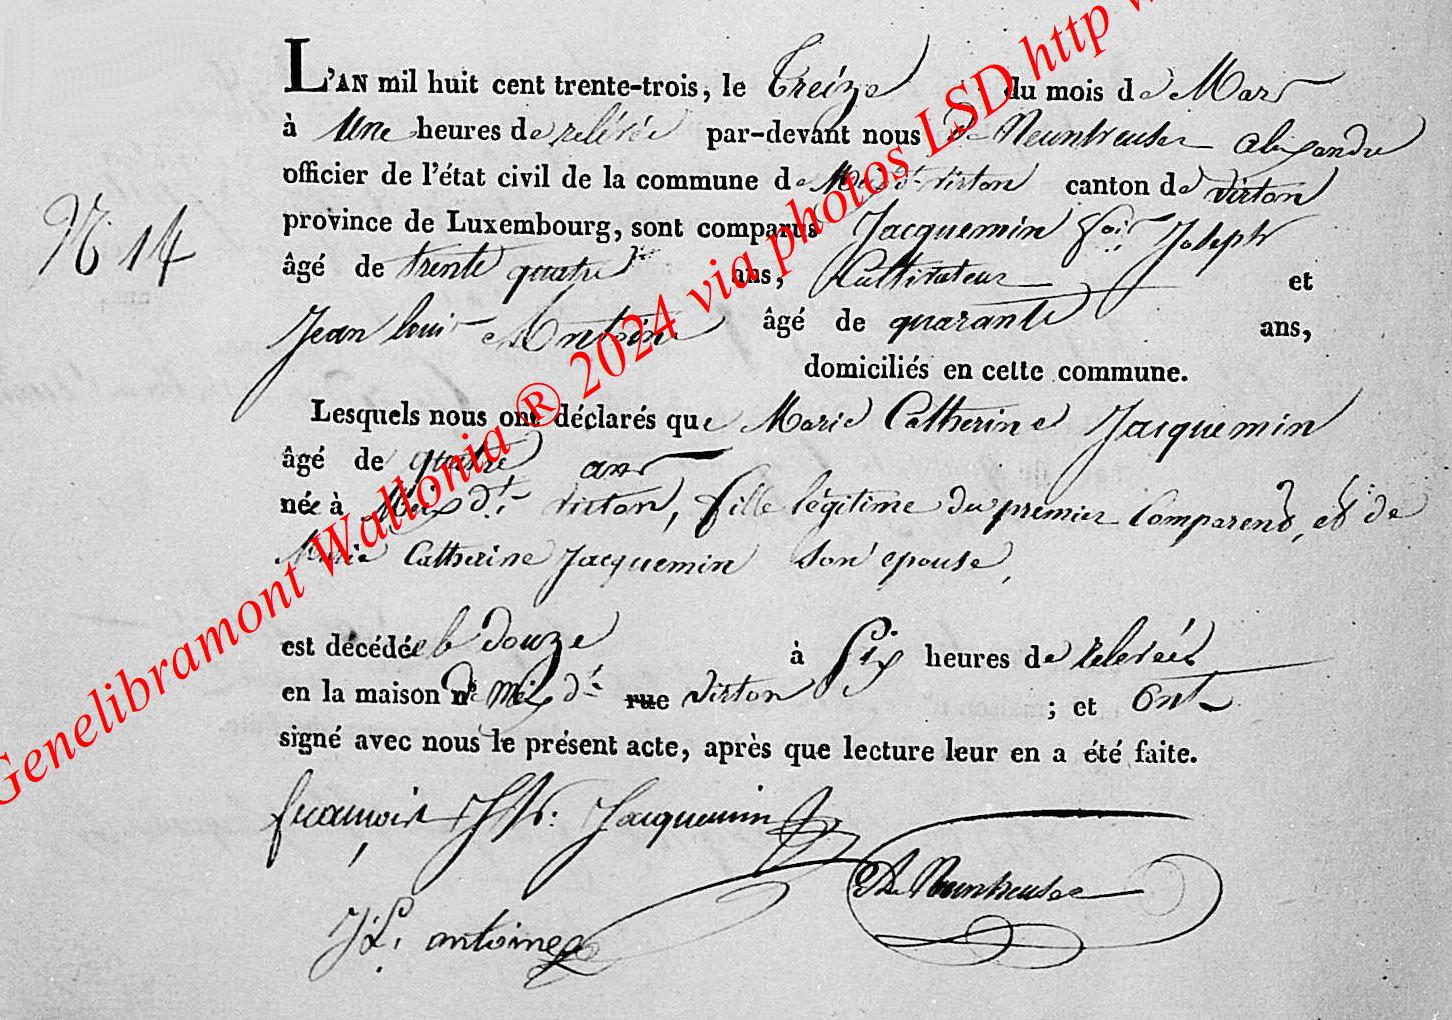 L'AN mil huit cent trente-trois, le treize du mois de Mars
à Une heures de relévée par-devant nous de Neuntheuser alexandre
officier de l'état civil de la commune de Meix dt virton canton de virton
province de Luxembourg, sont comparus Jacquemin fois Joseph
N° 14
âgé de trente quatre ans, Cultivateur et
Jean louis Antoine âgé de quarante ans,
domiciliés en cette commune.
Lesquels nous ont déclarés que Marie Catherine Jacquemin
âgé de quatre ans
née à Meix dt virton, fille légitime du premier Comparent, et de
Marie Catherine Jacquemin son épouse,
est décédée le douze à Six heures de relevée
en la maison de Meix dt rue virton ; et Ont
signé avec nous le présent acte, après que lecture leur en a été faite.
françois Jph: Jacquemin
De Neuntheuser
J L. antoine
Genelibramont Wallonia ® 2024 via photos LSD http